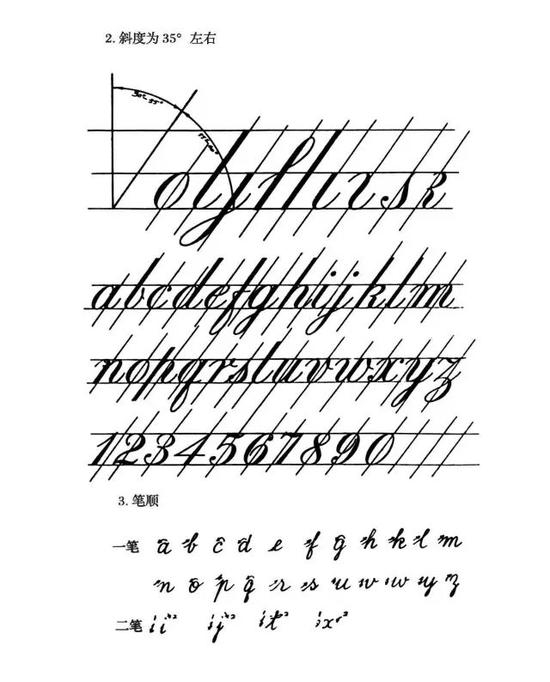 2. 斜度为35° 左右
abcdefghijklm
nopqrstuvwxyz
1234567890
3. 笔顺
一笔 a b c d e f g h k l m
n o p q r s u v w y z
二笔 i j t x